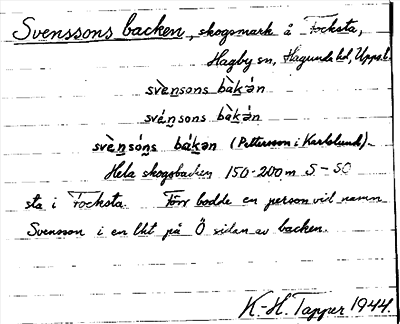 Svenssons backen, skogsmark å Focksta,
Hagby sn, Hagunda hd, Upps.l.
svènsons bàkən
svénsons bàkən
svènsóns bákən (Pettersson i Karlslund).
Hela skogsbacken 150-200 m S-SO
sta i Focksta. Förr bodde en person vid namn
Svensson i en lht på Ö sidan av backen.
K.-H. Tapper 1944.